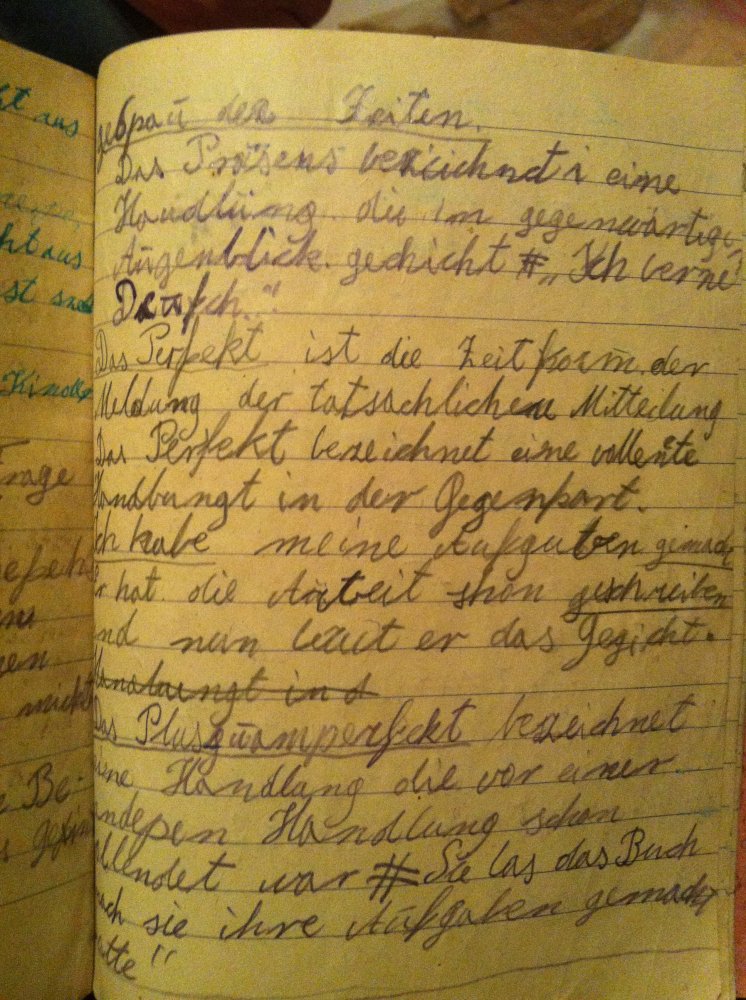 ht aus
ht aus
Kinder
Frage
Be-
Gebraü der Zeiten.
Das Präsens bezeichnet eine
Handlüng die im gegenwärtige
Augenblick geschicht # „Ich lerne
Deutsch."
Das Perfekt ist die Zeitform der
Meldung der tatsachlichen Mitteilung
Das Perfekt bezeichnet eine vollente
Handbungt in der Gegenpart.
Ich habe meine Aufgaben gemacht
Er hat die Arbeit shon geschreiben
und nun er das Gezicht.
Handbungt in d
Das Plusquamperfekt bezeichnet
eine Handlang die vor einer
andepen Handlung schon
vollendet war # Sie las das Buch
nach sie ihre Aufgaben gemacht
hatte"